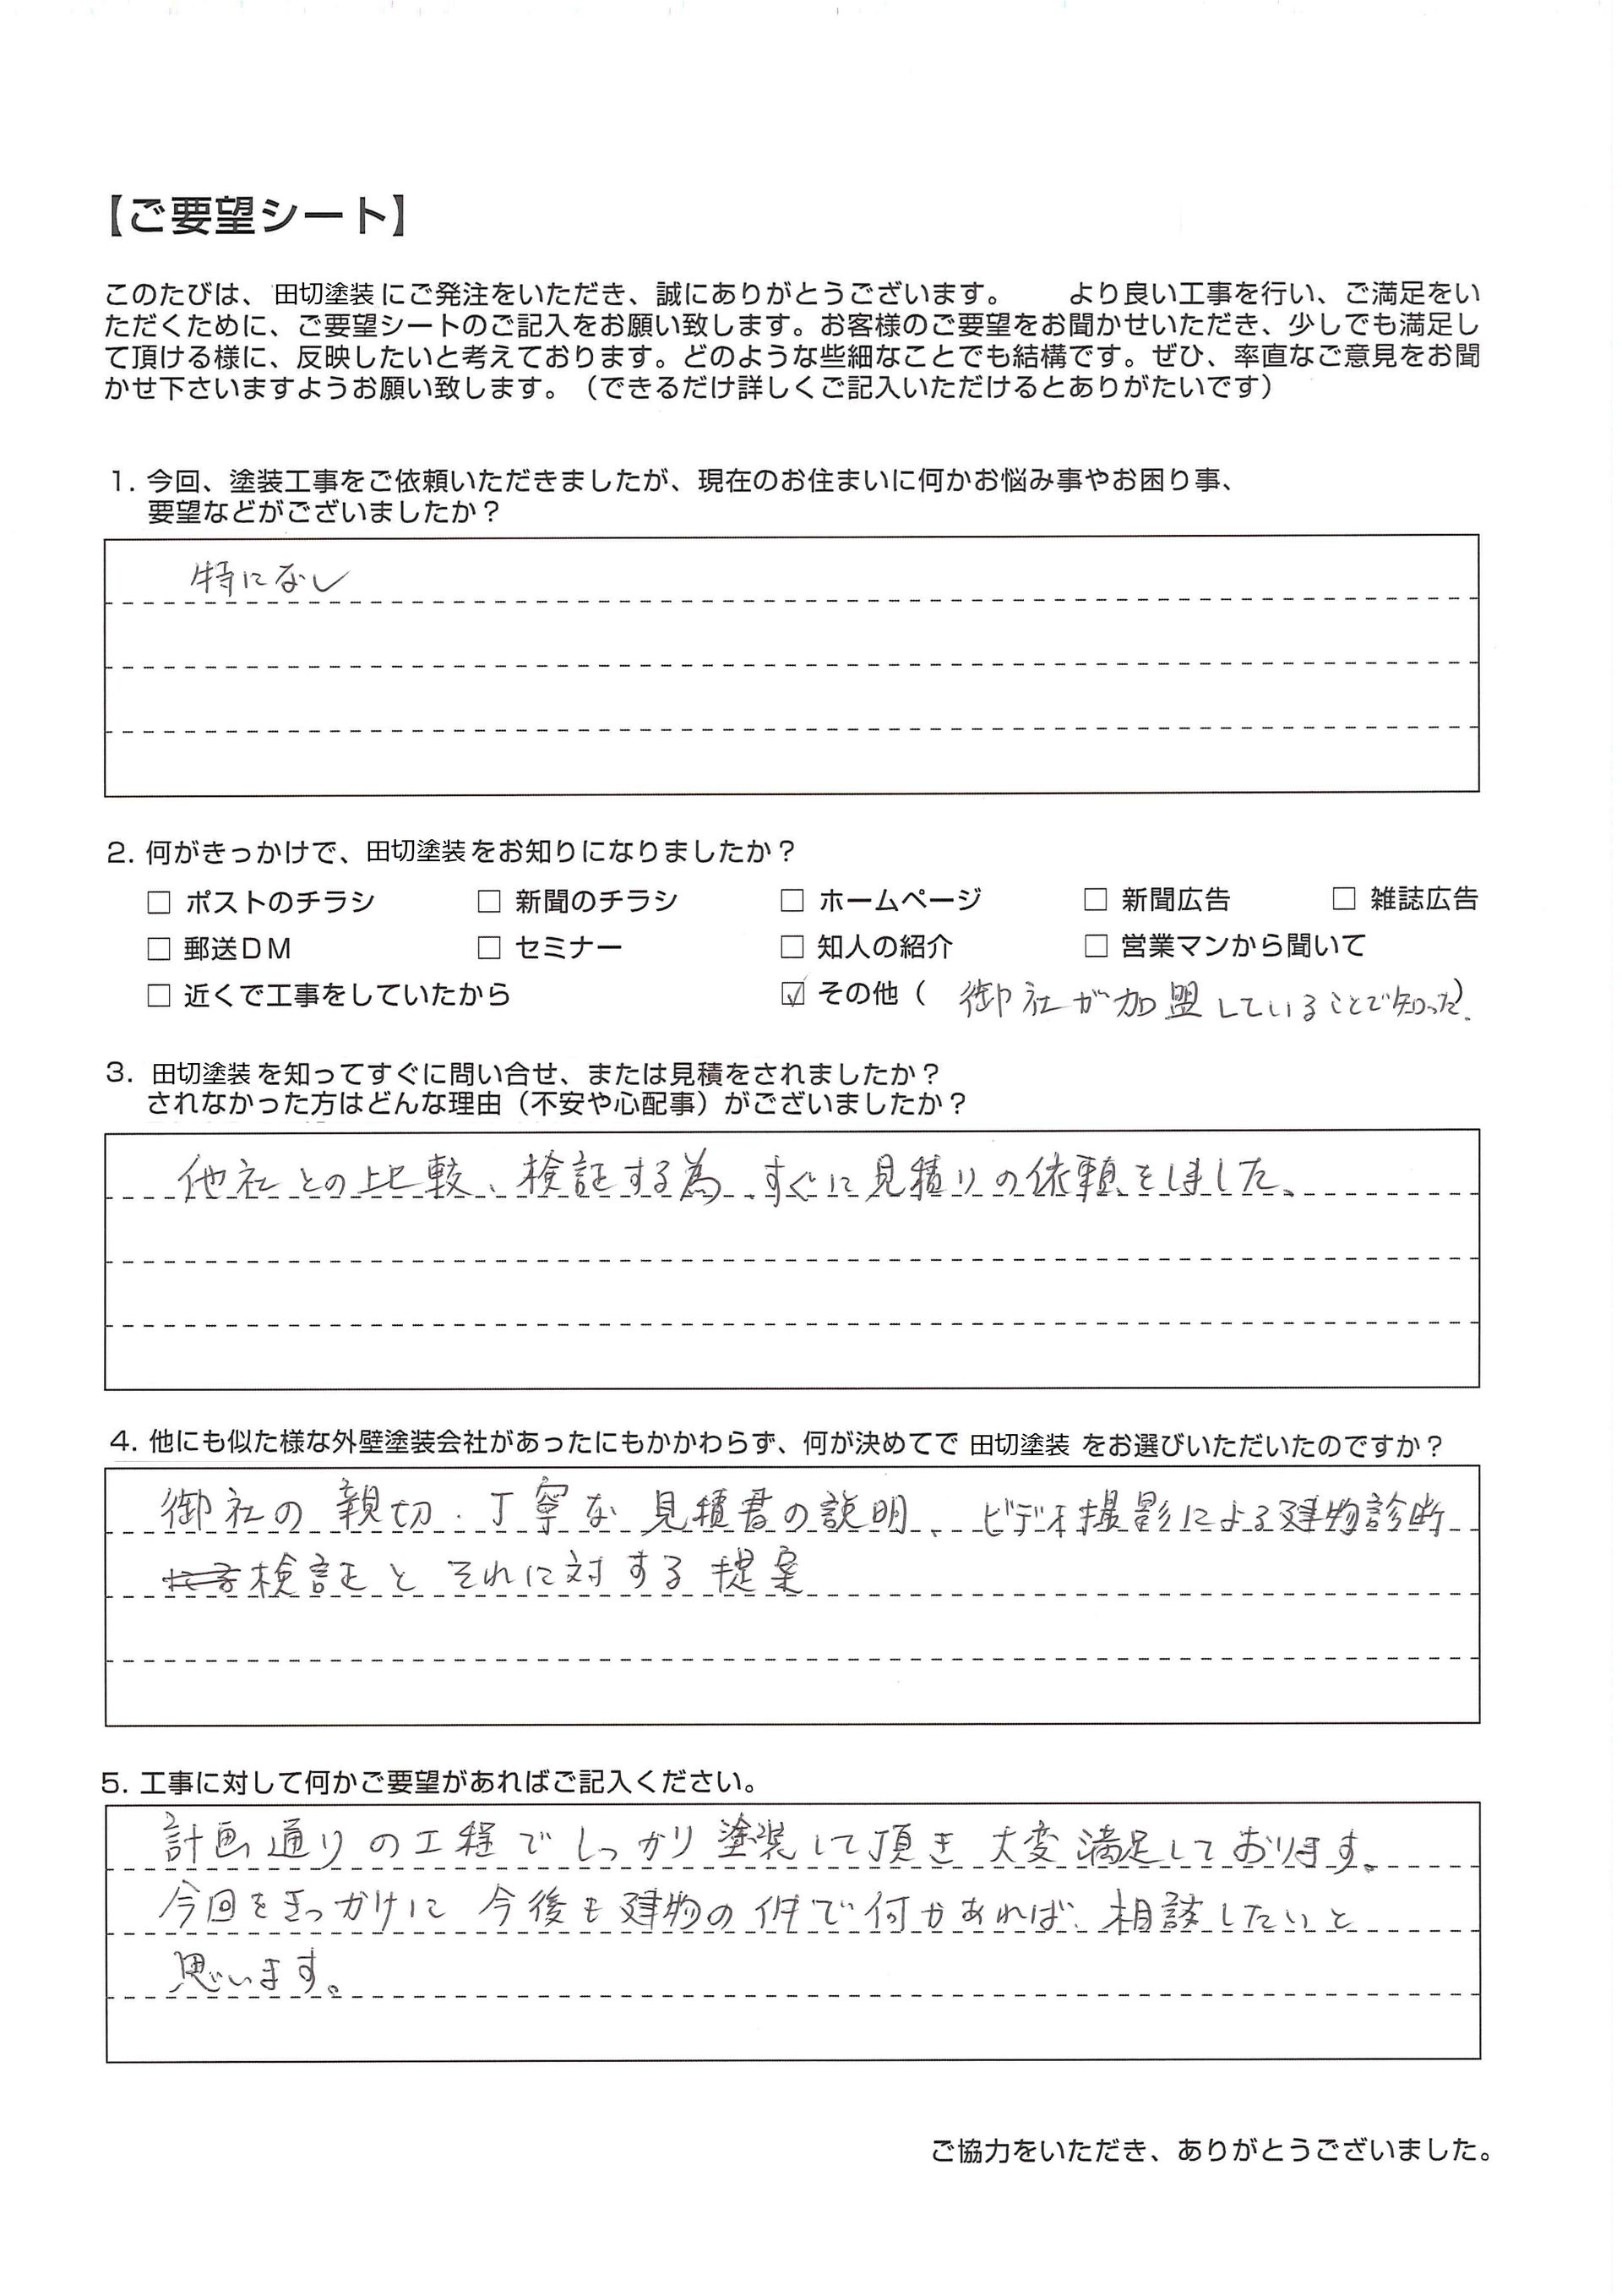 【ご要望シート】
このたびは、田切塗装にご発注をいただき、誠にありがとうございます。　　より良い工事を行い、ご満足をい
ただくために、ご要望シートのご記入をお願い致します。お客様のご要望をお聞かせいただき、少しでも満足し
て頂ける様に、反映したいと考えております。どのような些細なことでも結構です。ぜひ、率直なご意見をお聞
かせ下さいますようお願い致します。（できるだけ詳しくご記入いただけるとありがたいです）
1. 今回、塗装工事をご依頼いただきましたが、現在のお住まいに何かお悩み事やお困り事、
要望などがございましたか？
特になし
2. 何がきっかけで、田切塗装をお知りになりましたか？
□ ポストのチラシ　□ 新聞のチラシ　□ ホームページ　□ 新聞広告　□ 雑誌広告
□ 郵送DM　□ セミナー　□ 知人の紹介　□ 営業マンから聞いて
□ 近くで工事をしていたから　☑ その他（ 御社が加盟していることで知った）.
3. 田切塗装を知ってすぐに問い合せ、または見積をされましたか？
されなかった方はどんな理由（不安や心配事）がございましたか？
他社との比較、検証する為、すぐに見積りの依頼をしました。
4. 他にも似た様な外壁塗装会社があったにもかかわらず、何が決めてで 田切塗装 をお選びいただいたのですか？
御社の親切・丁寧な見積書の説明、ビデオ撮影による建物診断
検証とそれに対する提案
5. 工事に対して何かご要望があればご記入ください。
計画通りの工程でしっかり塗装して頂き大変満足しております。
今回をきっかけに今後も建物の件で何かあれば、相談したいと
思います。
ご協力をいただき、ありがとうございました。